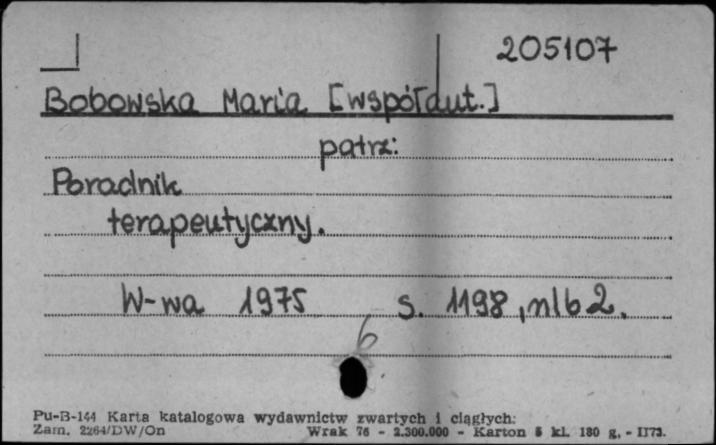 205107
Bobowska Maria [współaut.]
patrz:
Poradnik
terapeutyczny.
W-wa 1975 s. 1198, nlb 2.
6
Pu-B-144 Karta katalogowa wydawnictw zwartych i ciągłych:
Zam. 2264/DW/On Wrak 76 - 2.300.000 - Karton 5 kl. 180 g. - II73.